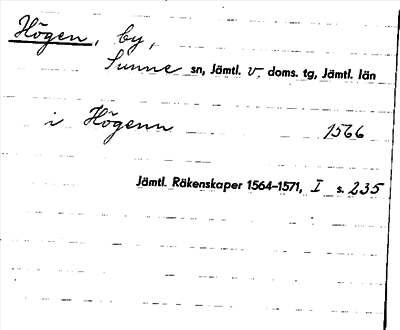 Högen, by,
Sunne sn, Jämtl. v. doms. tg, Jämtl. län
i Högenn 1566
Jämtl. Räkenskaper 1564-1571, I s. 235